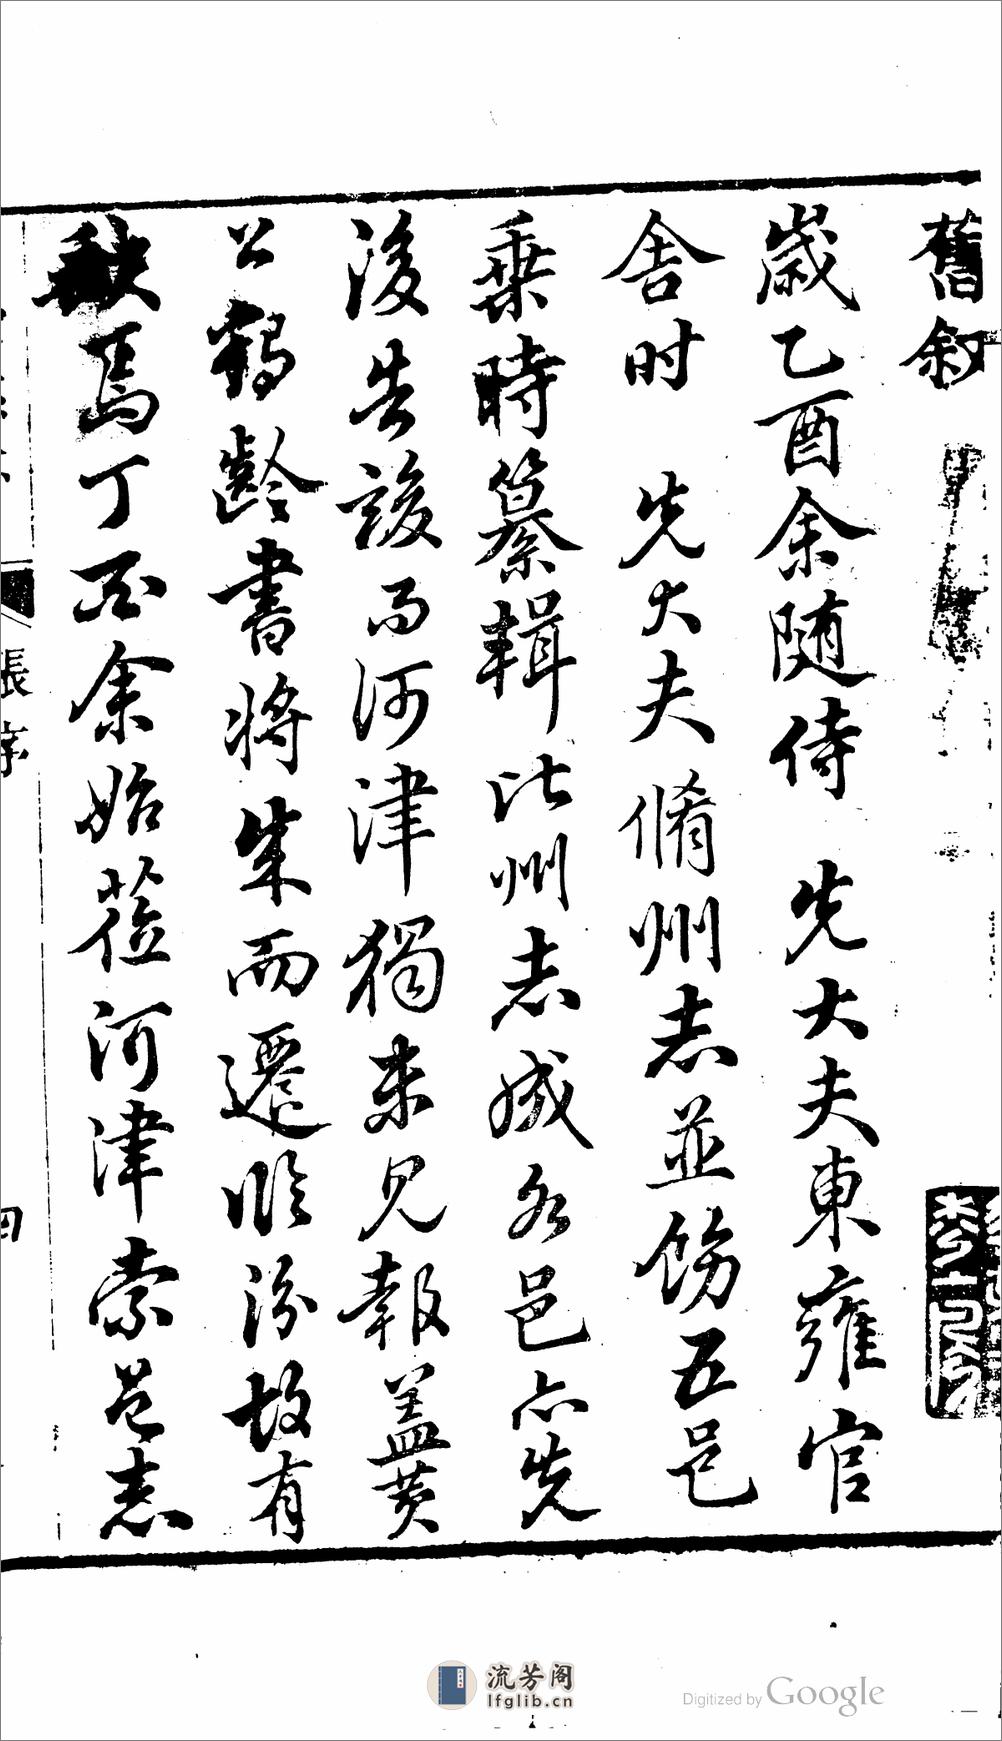 舊敘
歲乙酉余随侍 先大夫東雍官
舍时 先大夫脩州志並飭五邑
乗時纂輯此州志成各邑亦先
後告竣而河津獨未見報蓋黄
公鶴齡書將成而遷臨汾故有
缺焉丁酉余始蒞河津索邑志
張序
四
流芳阁
lfglib.cn
Digitized by Google